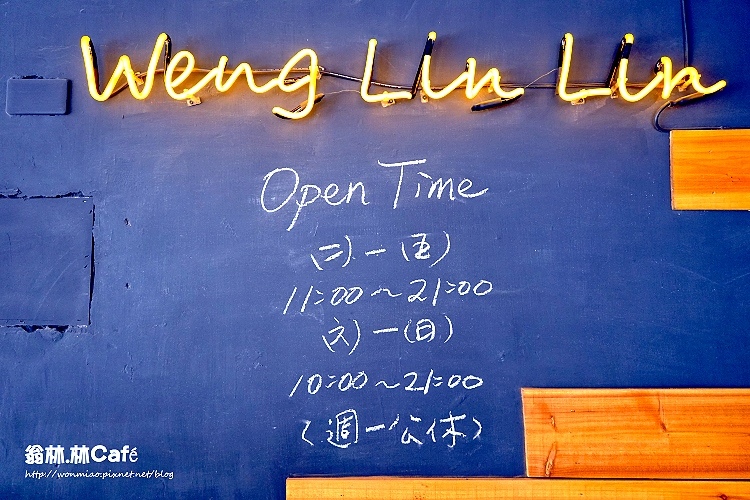 Weng Lin Lin
Open Time
(二)－(五)
11:00～21:00
(六)－(日)
10:00～21:00
(週一公休)
翁林.林Café
http://wonmiao.pixnet.net/blog